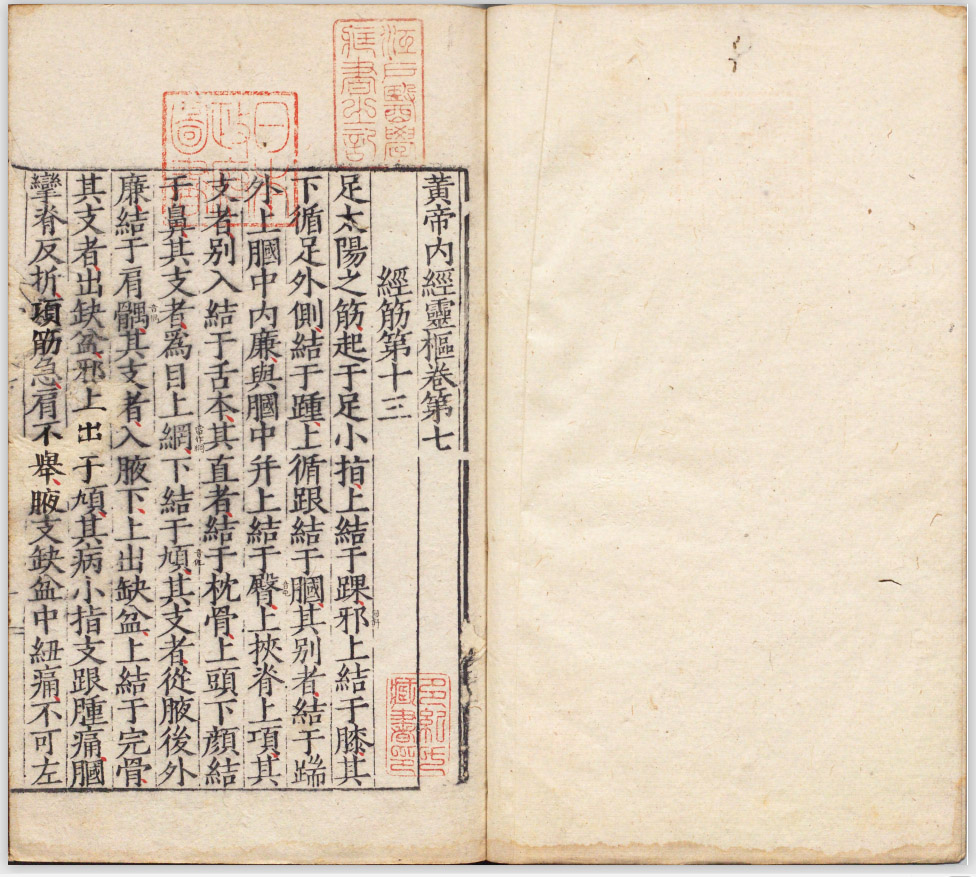 黃帝内經靈樞卷第七
經筋第十三
足太陽之筋起于足小指上結于踝邪上結于膝其
下循足外側結于踵上循跟結于膕其别者結于踹
外上膕中内廉與膕中并上結于臀上挾脊上項其
支者别入結于舌本其直者結于枕骨上頭下顔結
于鼻其支者爲目上網下結于頄其支者從腋後外
廉結于肩髃其支者入腋下上出缺盆上結于完骨
其支者出缺盆邪上出于頄其病小指支跟腫痛膕
攣脊反折項筋急肩不舉腋支缺盆中紐痛不可左
江戸醫學
藏書之記
日本
政府
圖書